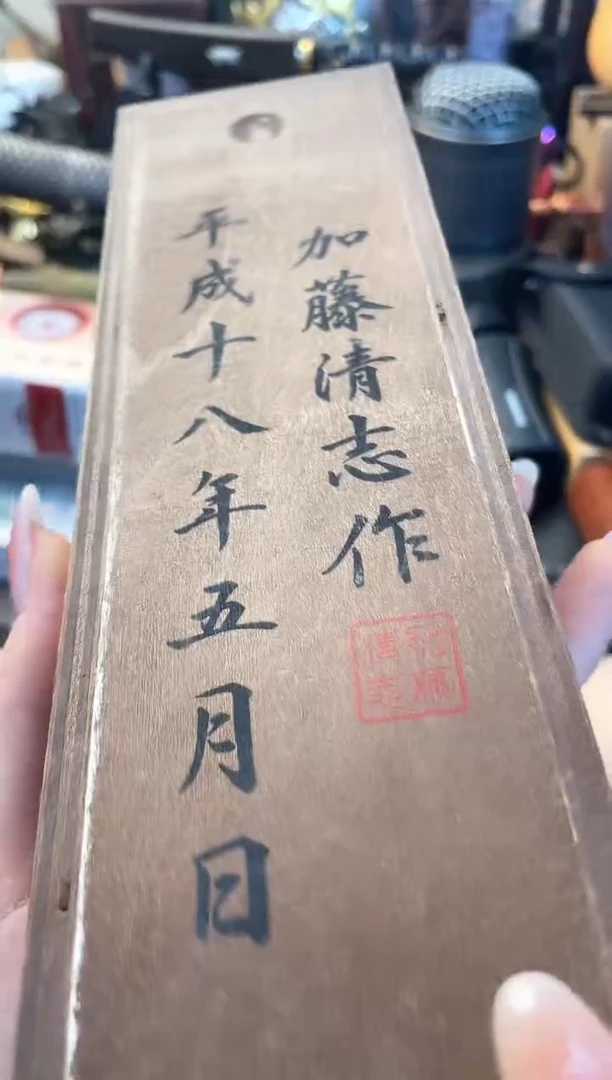 加藤清志作
平成十八年五月日